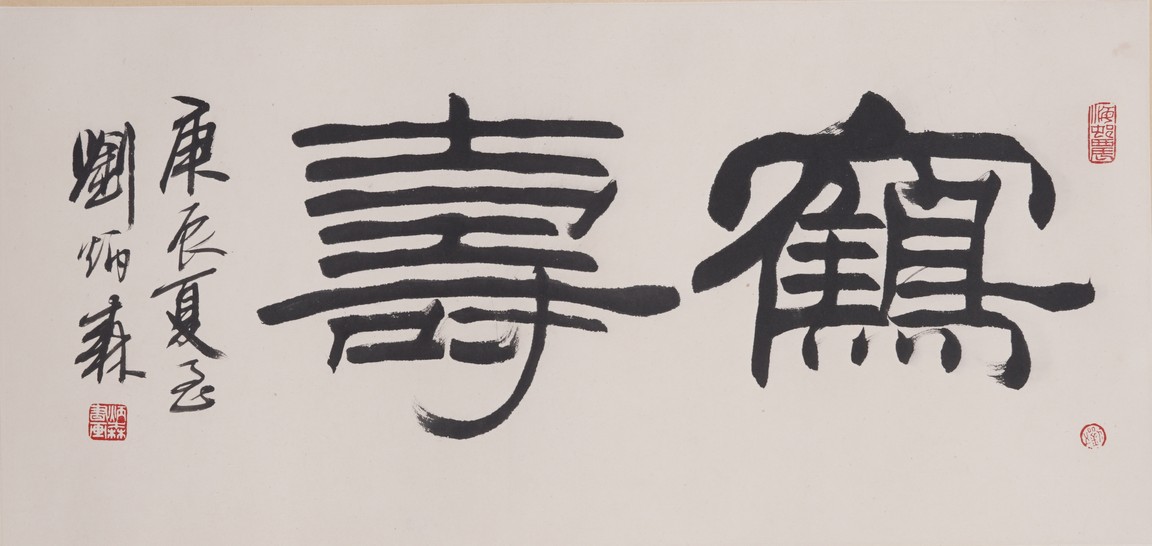 鶴壽
庚辰夏至
劉炳森
炳森書画